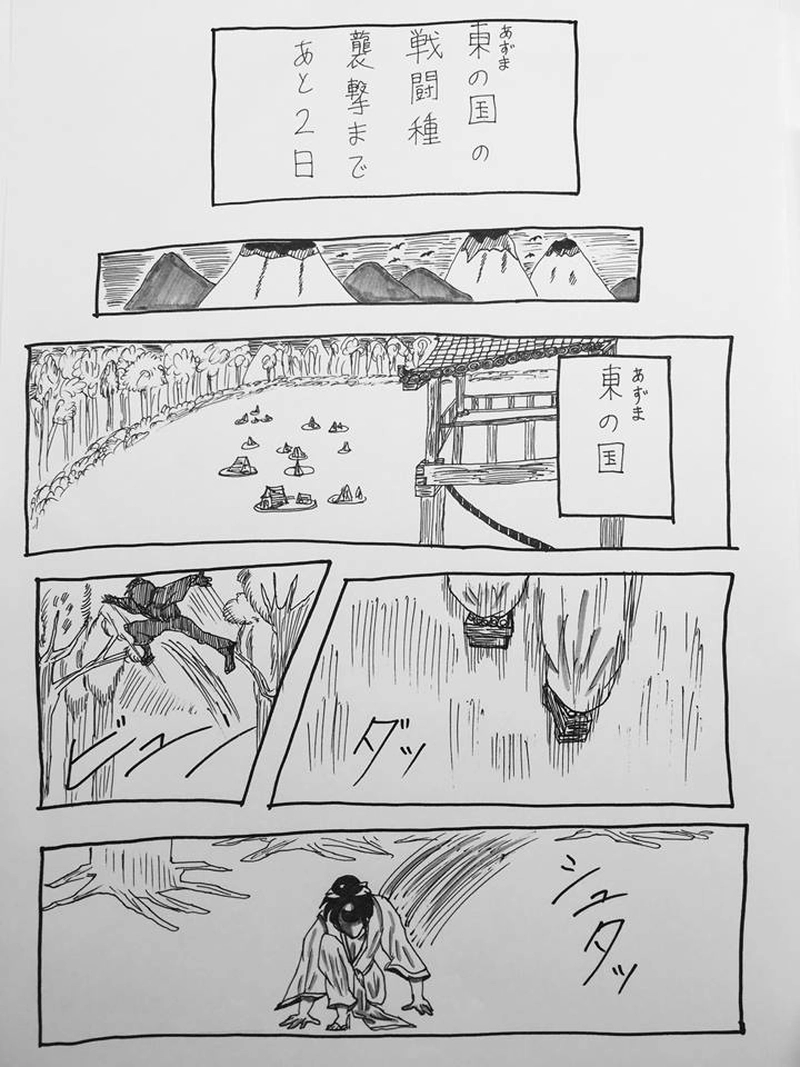 東の国の
あずま
戦闘種
襲撃まで
あと2日
東の国
あずま
ダッ
ビュン
シュタッ